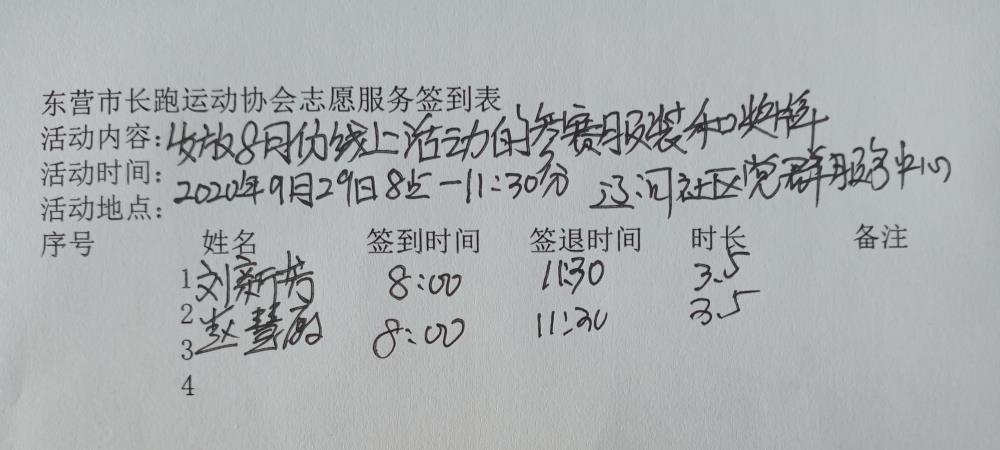 东营市长跑运动协会志愿服务签到表
活动内容:收放8月份线上活动的参赛服装和奖牌
活动时间:2020年9月29日8点—11:30分 辽河社区党群服务中心
活动地点:
序号 姓名 签到时间 签退时间 时长 备注
1 刘新芳 8:00 11:30 3.5
2 赵慧 8:00 11:30 3.5
3
4